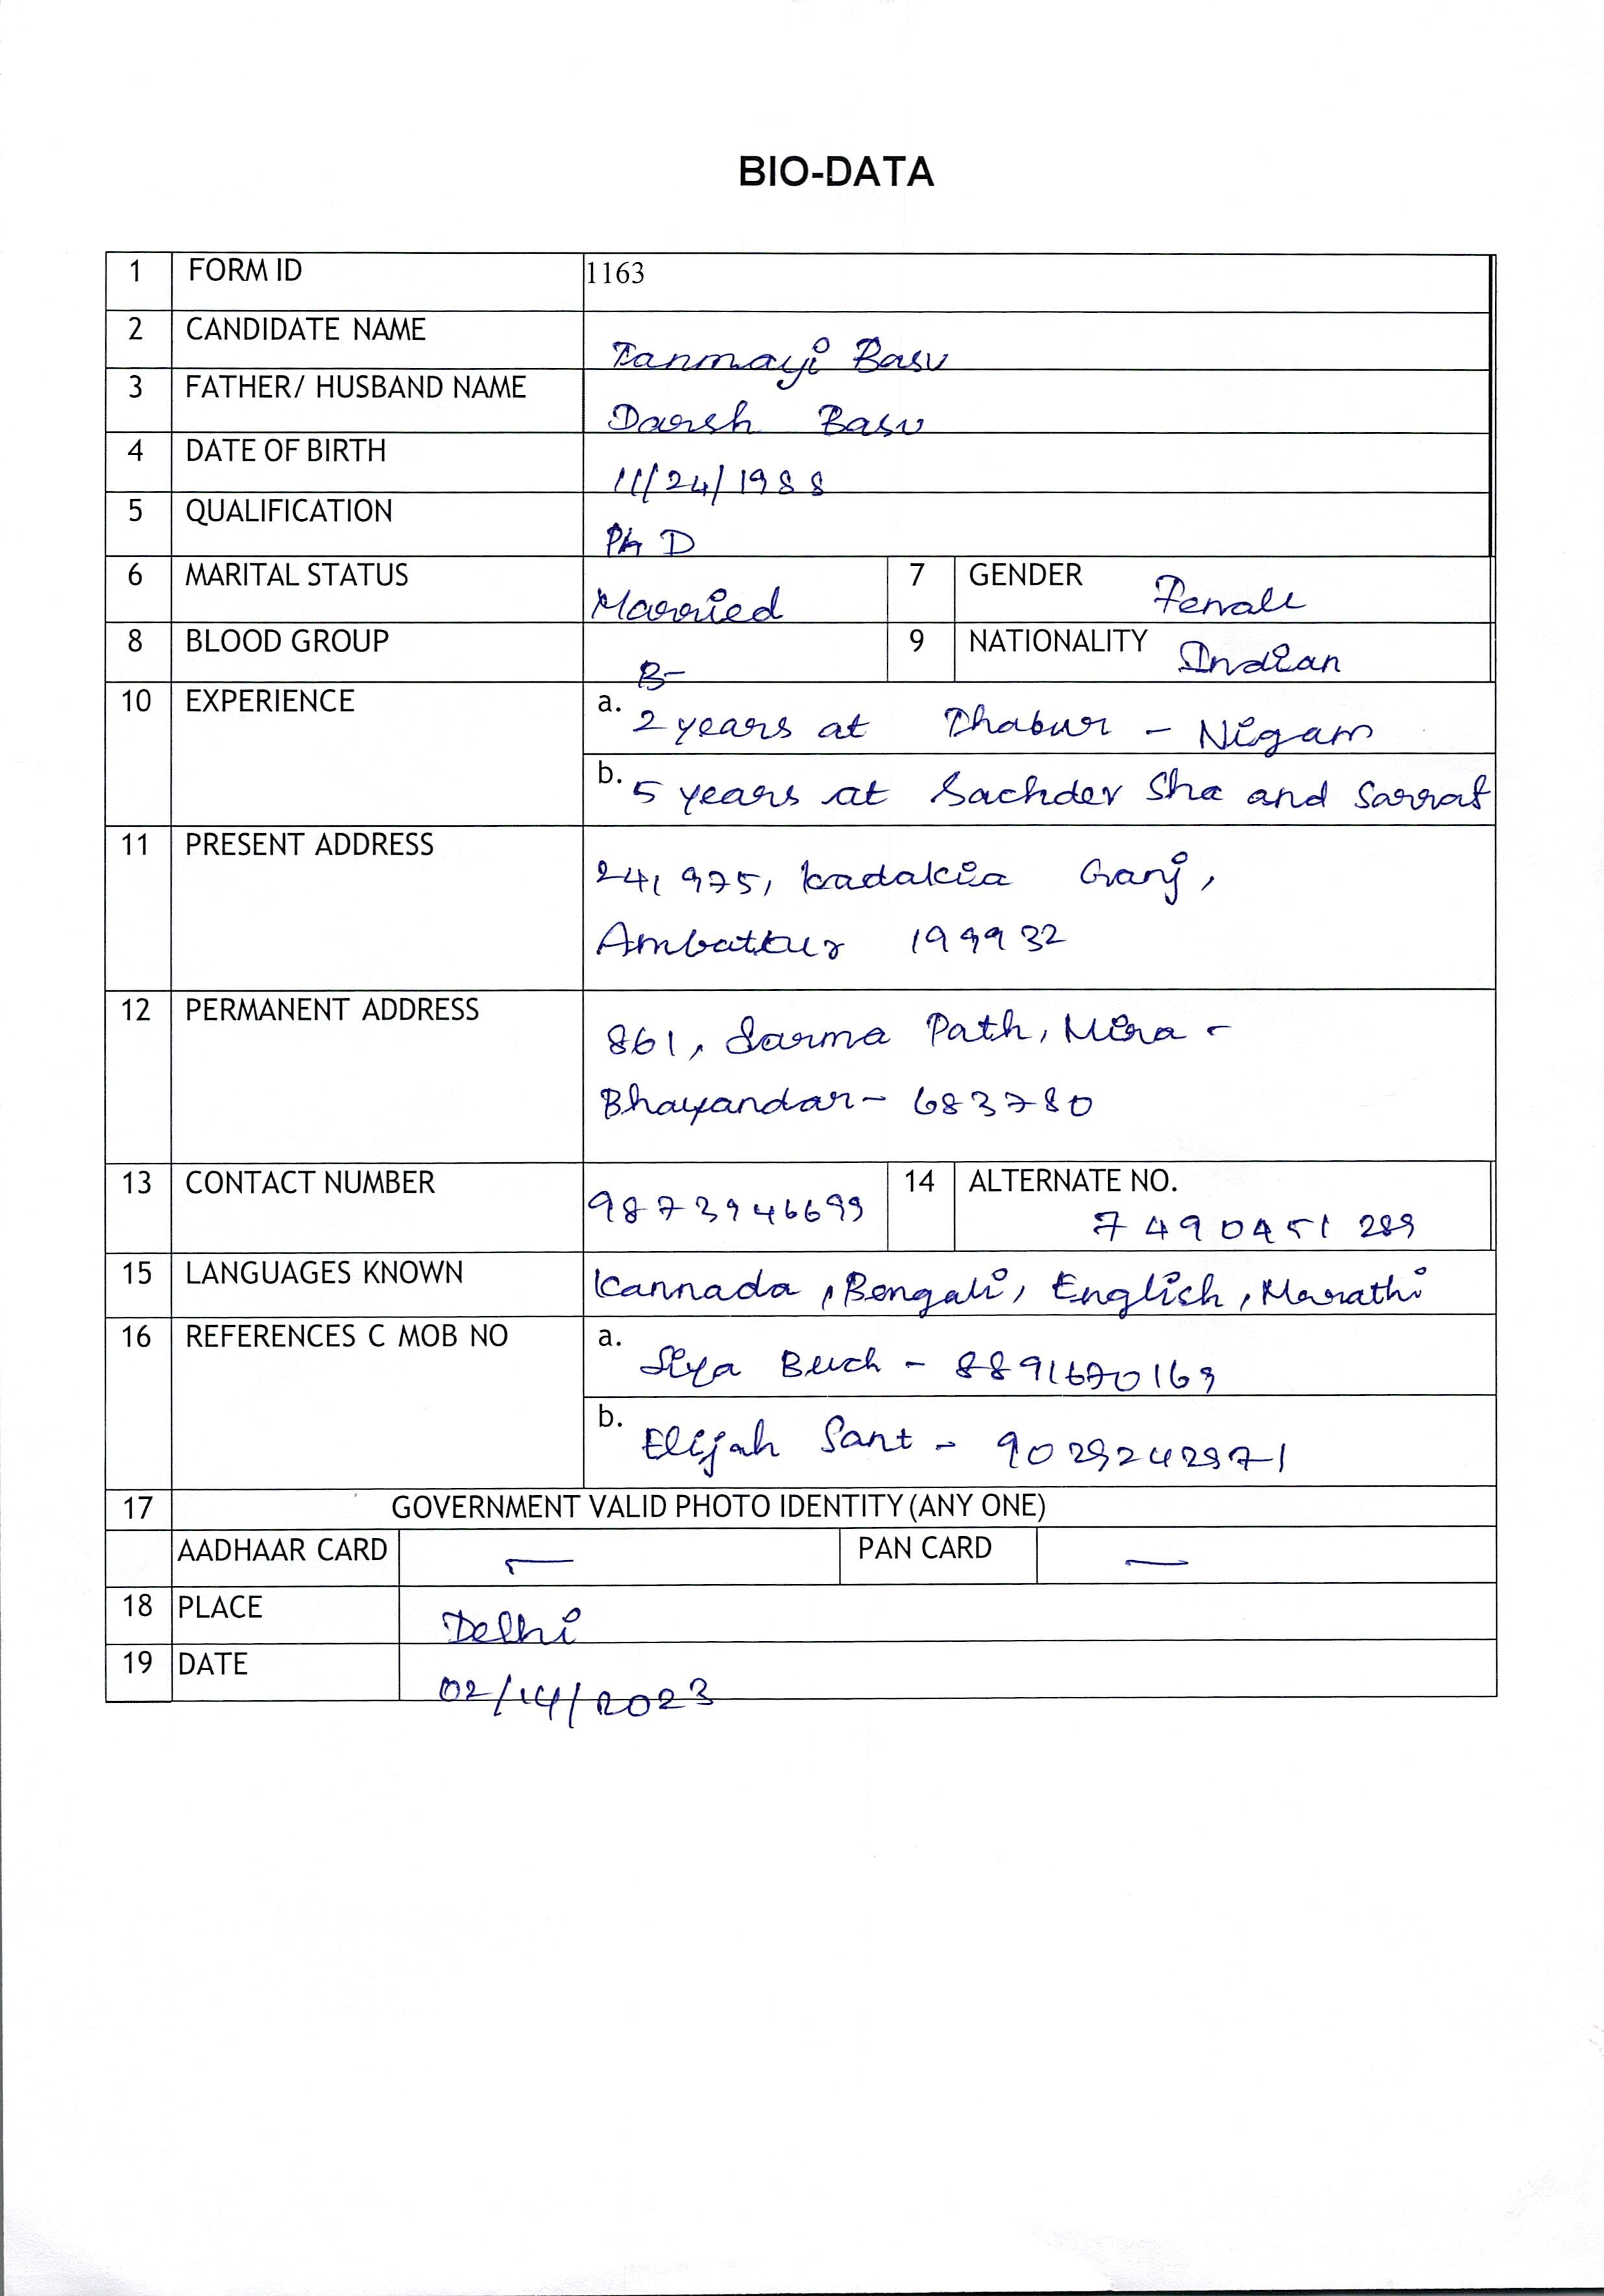 BIO-DATA
1 FORM ID 1163
2 CANDIDATE NAME Tanmayi Basu
3 FATHER/ HUSBAND NAME Darsh Basu
4 DATE OF BIRTH 11/24/1988
5 QUALIFICATION PhD
6 MARITAL STATUS Married 7 GENDER Female
8 BLOOD GROUP B- 9 NATIONALITY Indian
10 EXPERIENCE a. 2 years at - Nigam
b. 5 years at Sachdev Sha and Sarraf
11 PRESENT ADDRESS 24, 975, Kadakia Ganj,
Ambattur 199932
12 PERMANENT ADDRESS 861, Sarma Path, Mira -
Bhayandar - 683780
13 CONTACT NUMBER 9873946699 14 ALTERNATE NO.
7490451289
15 LANGUAGES KNOWN Kannada, Bengali, English, Marathi
16 REFERENCES C MOB NO a. Siya Buch - 8891670169
b. Elijah Sant - 9029242971
17 GOVERNMENT VALID PHOTO IDENTITY (ANY ONE)
AADHAAR CARD — PAN CARD —
18 PLACE Delhi
19 DATE 02/14/2023